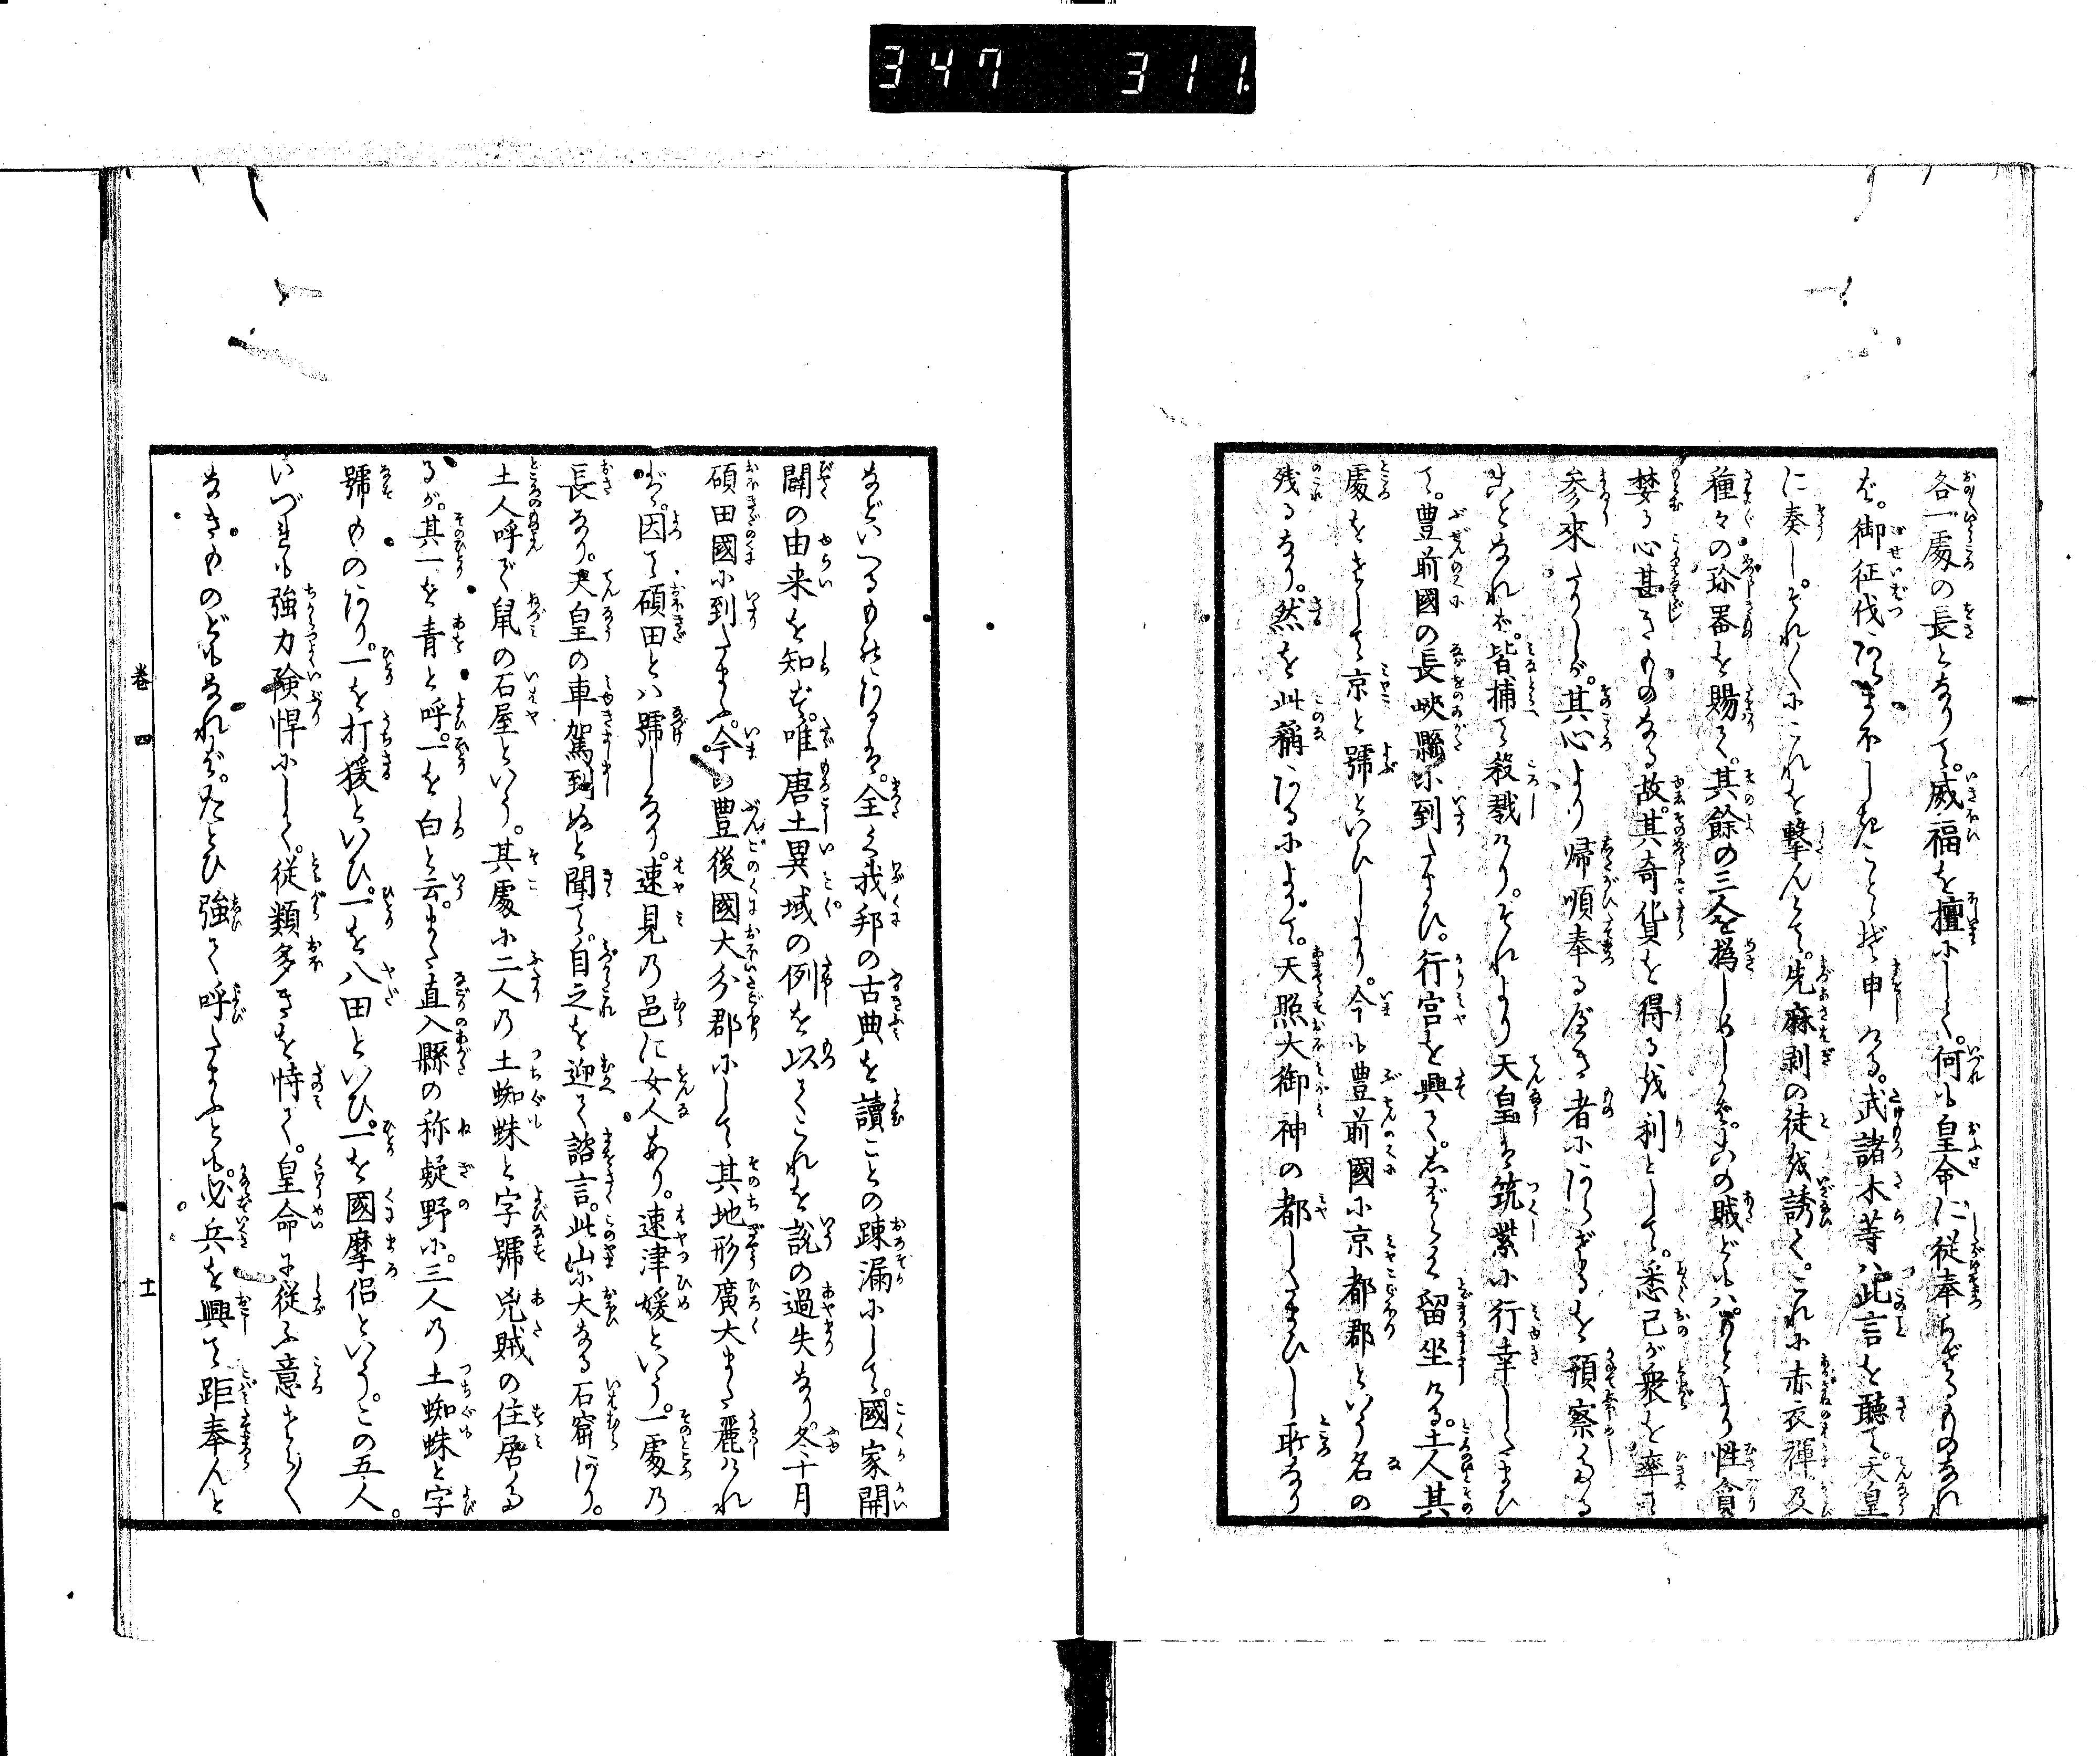 347 311.
各一處の長となりて。威福を擅にして。何も皇命に従奉らざるものなれ
ば。御征伐あらまほしきことゝぞ申ける。武諸木等ハ此言を聴て。天皇
に奏し。それ〳〵にこれを撃んとて。先麻剥の徒を誘く。これに赤衣褌及
種々の珍器を賜て。其餘の三人を撝しめしかば。この賊どもハもとより性貪
婪る心甚きものなる故。其奇貨を得るを利として。悉己が衆を率て
参来りしが。其心より帰順奉る者にあらざるを預察たる
ことなれば。皆捕て殺戮けり。それより天皇は筑紫に行幸したまひ
て。豊前國の長峽縣に到たまひ。行宮を興て。しばらく留坐ける。土人其
處をさして京と號といひしより。今も豊前國に京都郡といふ名の
残るなり。然を此稱あるによりて。天照大御神の都したまひし所なり
などいへるものあるは。全く我邦の古典を讀ことの疎漏にして。國家開
闢の由来を知ず。唯唐土異域の例を以てこれを説の過失なり。冬十月
碩田國に到たまふ。今の豊後國大分郡にして其地形廣大また麗けれ
ば。因て碩田とハ號しなり。速見乃邑に女人あり。速津媛といふ。一處乃
長なり。天皇の車駕到ぬと聞て。自之を迎て諮言。此山に大なる石窟あり。
土人呼で鼠の石屋といふ。其處に二人乃土蜘蛛と字號兇賊の住居た
るが。其一を青と呼。一を白と云。また直入縣の称疑野に。三人乃土蜘蛛と字
號ものあり。一を打猨といひ。一を八田といひ。一を國摩侶といふ。この五人。
いづれも強力険悍にして。従類多きを恃て。皇命に従ふ意さらに
なきものどもなれば。たとひ強て呼たまふとも。必兵を興て距奉んと
巻四
十一